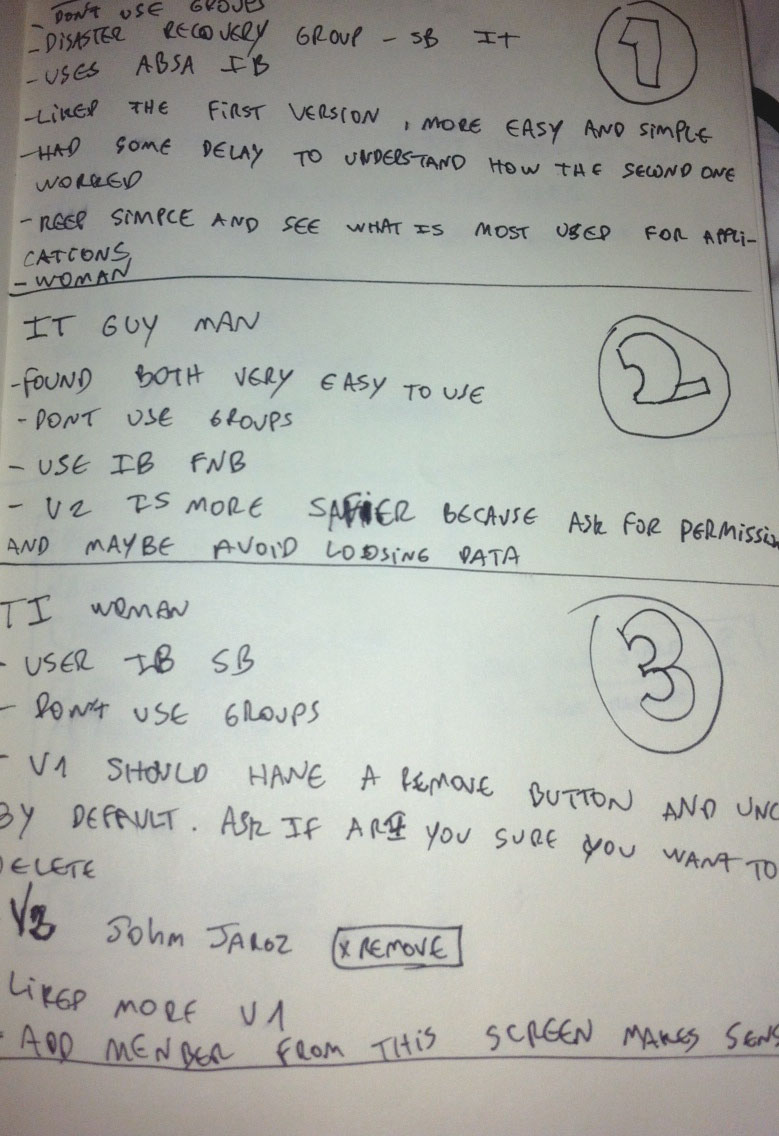 DON'T USE GROUPS
- DISASTER RECOVERY GROUP - SB IT
1
- USES ABSA IB
- LIKED THE FIRST VERSION, MORE EASY AND SIMPLE
- HAD SOME DELAY TO UNDERSTAND HOW THE SECOND ONE
WORKED
- KEEP SIMPLE AND SEE WHAT IS MOST USED FOR APPLI-
CATIONS
- WOMAN
IT GUY MAN
2
- FOUND BOTH VERY EASY TO USE
- DONT USE GROUPS
- USE IB FNB
- V2 IS MORE SAFIER BECAUSE ASK FOR PERMISSION
AND MAYBE AVOID LOOSING DATA
TI WOMAN
3
- USER IB SB
- DON'T USE GROUPS
- V1 SHOULD HAVE A REMOVE BUTTON AND UNC
BY DEFAULT. ASK IF ARE YOU SURE YOU WANT TO
DELETE
V3 John JAROZ X REMOVE
LIKED MORE V1
- ADD MENBER FROM THIS SCREEN MAKES SENS